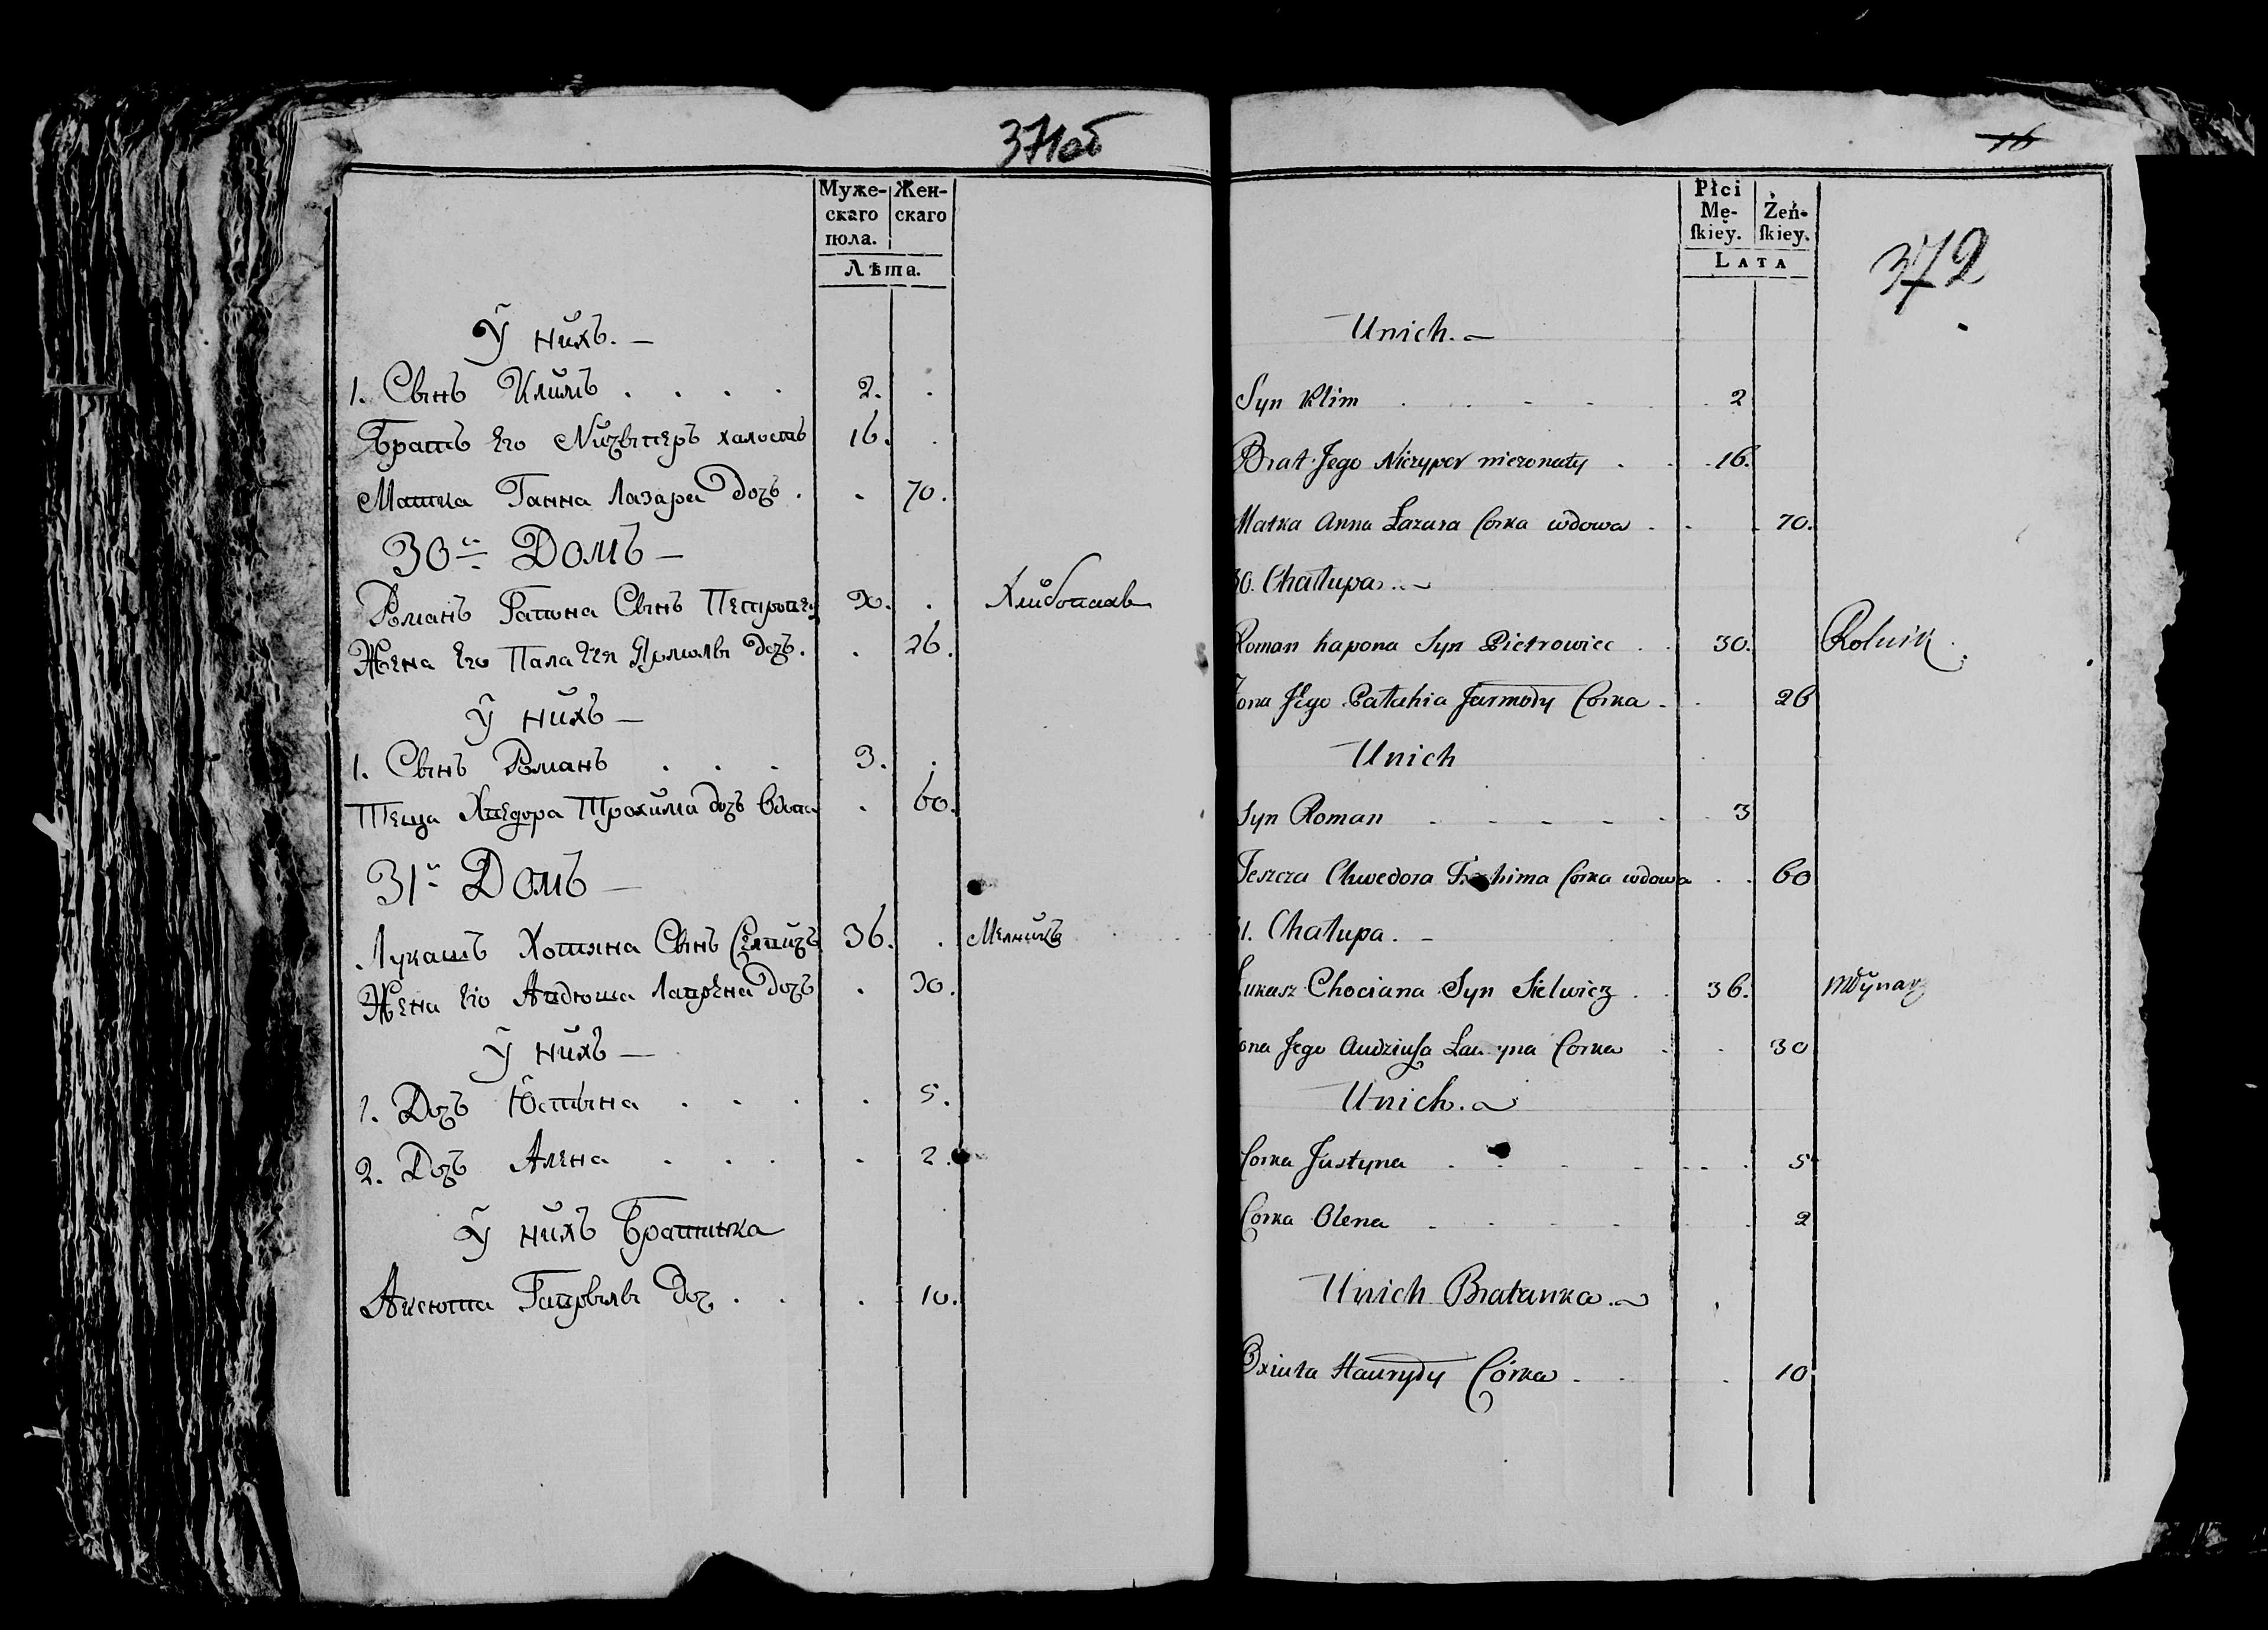 371об
Муже-
скаго
пола.
Жен-
скаго
Лѣта.
Ў нихъ. —
1. Сынъ Климъ . . . . 2. .
Братъ Его Ничыперъ халостъ 16. .
Матка Ганна Лазара Дочъ . . 70.
30й Домъ —
Романъ Гапона Сынъ 30. .
Жена Его Палагея Ярмолы Дочъ. . 26.
Ў нихъ —
1. Сынъ Романъ . . . 3. .
Теща Хведора Трохима дочъ вдова . 60.
31й Домъ —
Лукашъ Хотяна Сынъ 36. . Мелникъ
Жена Его Авдюша Лаврена дочъ . 30.
Ў нихъ —
1. Дочъ Юстына . . . . 5.
2. Дочъ Алена . . . . 2.
Ў нихъ Братанка
Аксюта Гаврылы Доч . . . 10.
16
372
Płci
Mę-
ſkiey.
Żeń-
ſkiey.
LATA
Unich. —
Syn Klim . . - - . 2
Brat Jego Niczyper niezonaty . . 16.
Matka Anna Łazara Corka wdowa . . . 70.
30. Chałupa. —
Roman hapona Syn Pietrowiec . . 30. Rolnik.
Jego Pałahia Jarmoły Corka . . 26
Unich
Syn Roman - - - - . 3
Teszcza Chwedora Corka wdowa . . 60
31. Chałupa. —
Łukasz Chociana Syn Sielwicz . . 36. Młynarz
Jego Audziuſa Corka . . 30
Unich.
Corka Justyna . . . . . 5
Corka Olena . . . . . 2
Unich Bratanka.
Oxiuta Hauryły Córka . . . 10